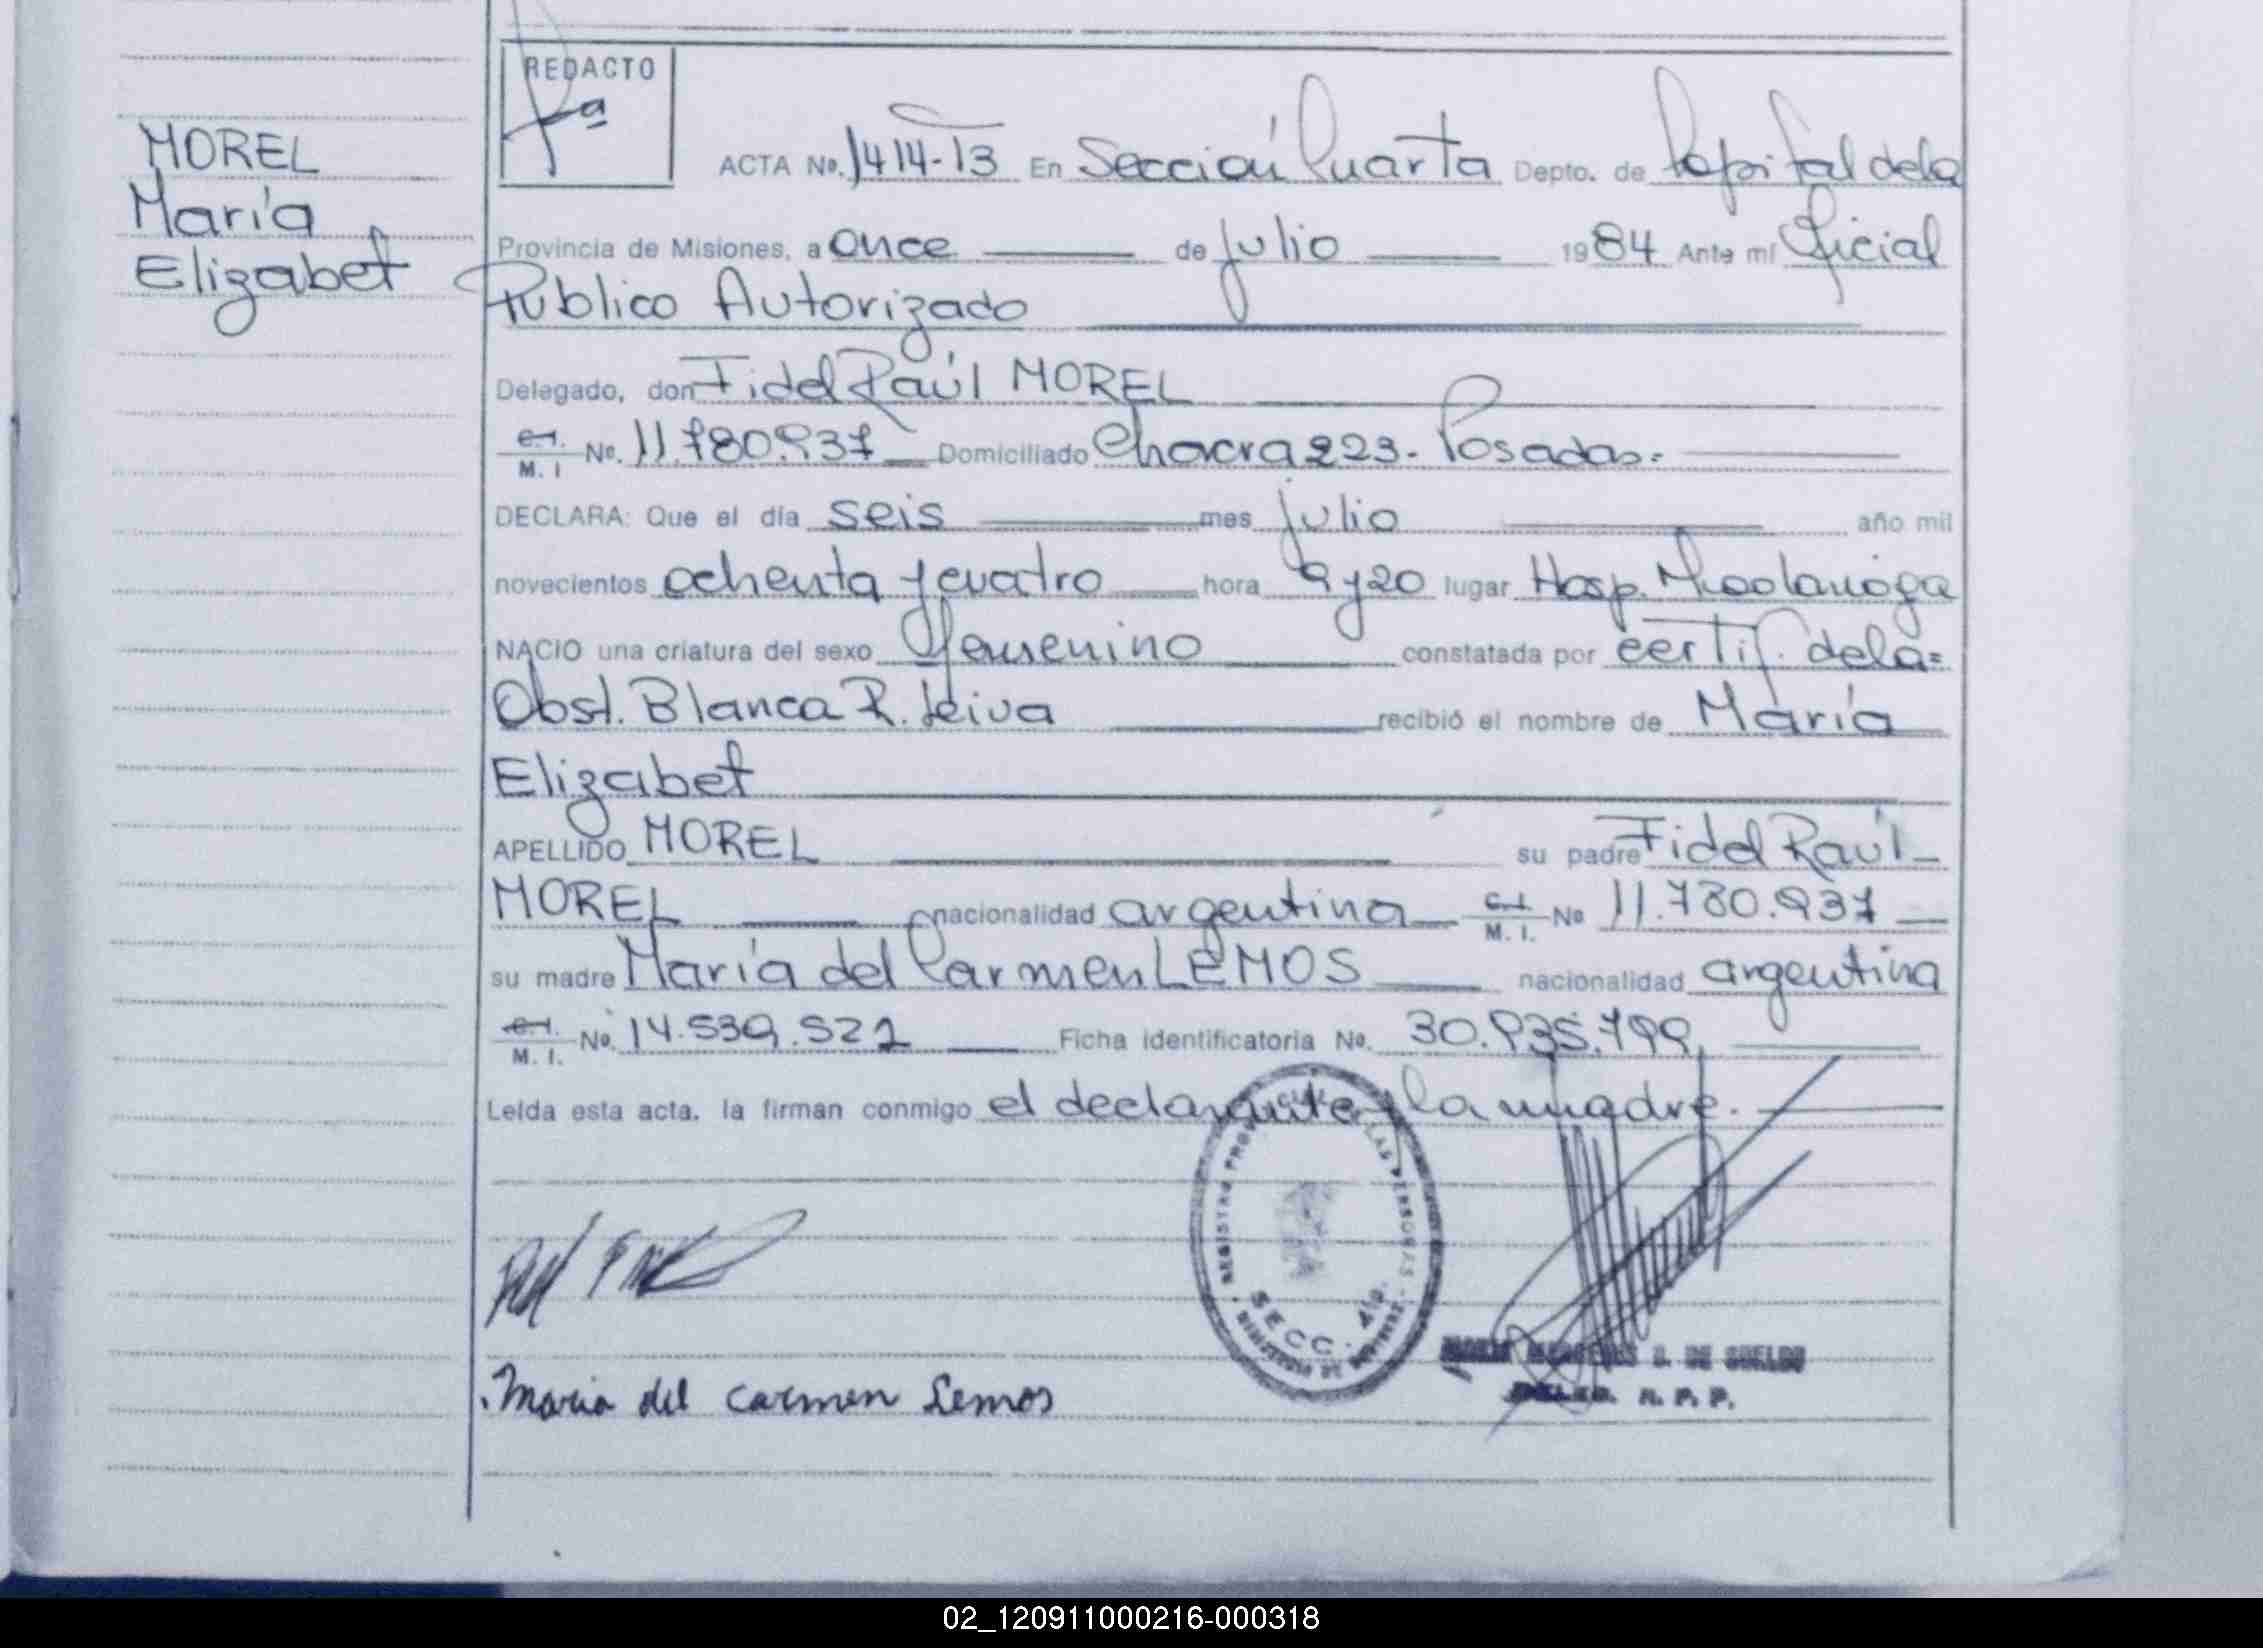 REDACTO
MOREL
María
Elizabet
ACTA No. 1414-T3 En Sección Cuarta Depto. de Capital de la
Provincia de Misiones, a once de julio 1984 Ante mi Oficial
Público Autorizado
Delegado, don Fidel Raúl MOREL
C.I. M. I No. 11.780.937 Domiciliado Chacra 223. Posadas.
DECLARA: Que el día seis mes julio año mil
novecientos ochenta y cuatro hora 9 y 20 lugar Hosp.
NACIO una criatura del sexo femenino constatada por certif. de la=
Obst. Blanca R. Leiva recibió el nombre de María
Elizabet
APELLIDO MOREL su padre Fidel Raúl
MOREL nacionalidad argentina C.I. M. I. No 11.780.937
su madre María del Carmen LEMOS nacionalidad argentina
C.I. M. I. No. 14.539.522 Ficha identificatoria No. 30.935.799
Leída esta acta, la firman conmigo el declarante y la madre.
SECC. 4ta.
Maria del Carmen Lemos
DE SUELDO
R. P. P.
02_120911000216-000318